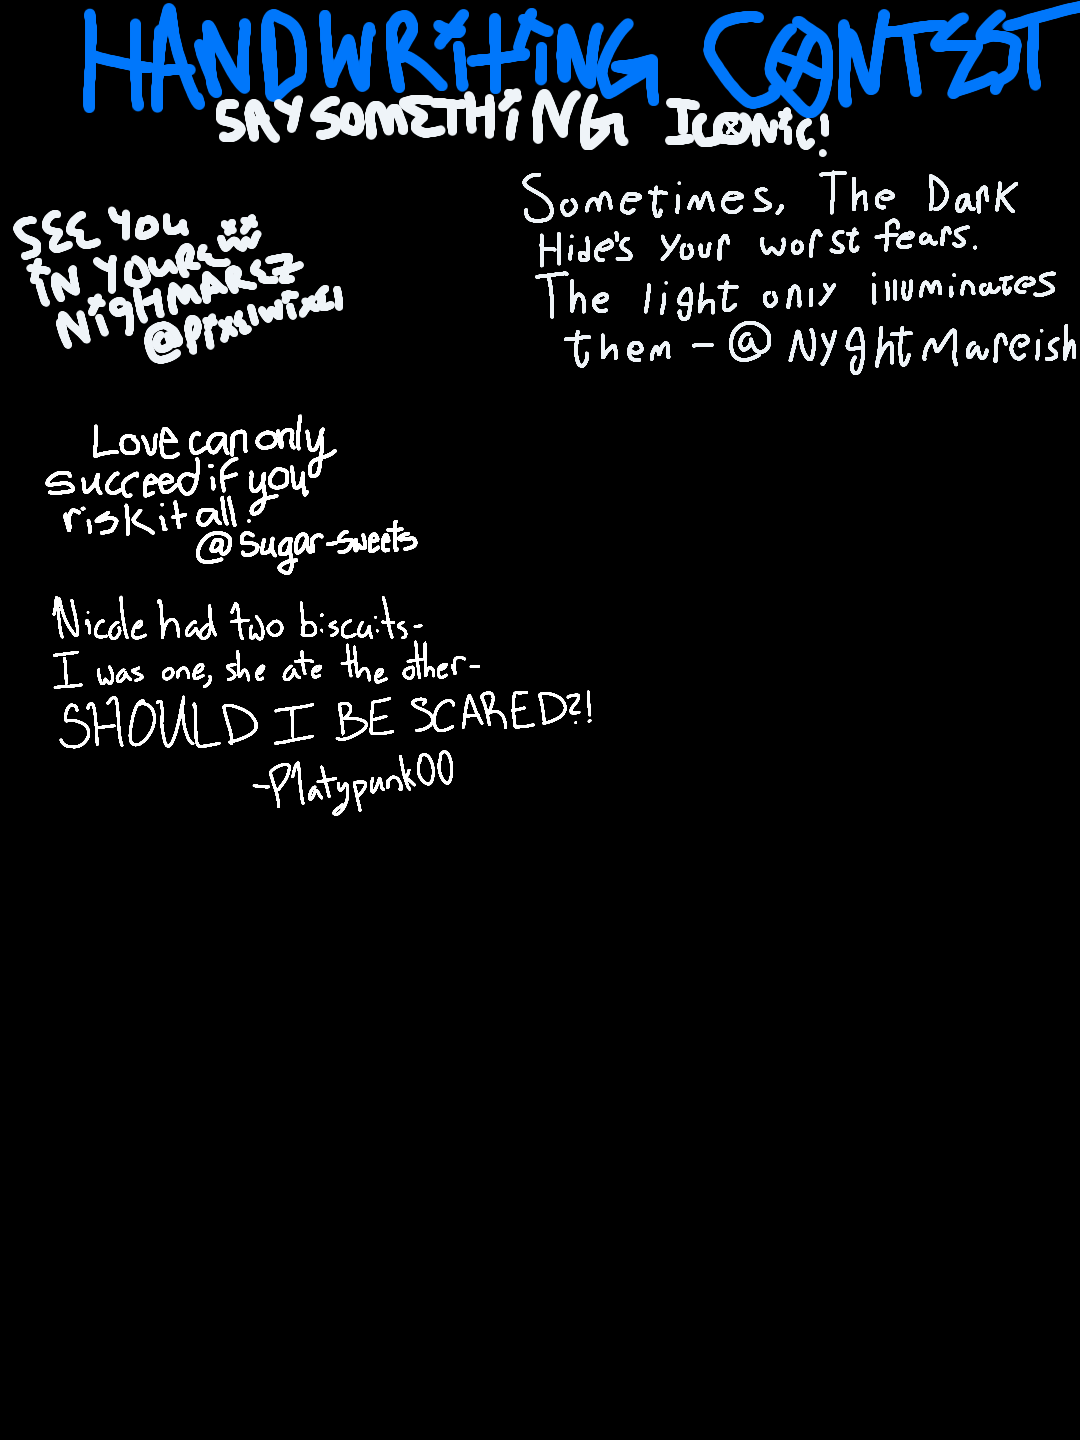 HANDWRiTiNG CONTEST
SAY SOMETHiNG ICONiC!
SEE YOU
iN YOURE
NiGHMAREZ
Sometimes, The Dark
Hide's Your worst fears.
The light only illuminates
them - @NYghtMareish
Love can only
succeed if you
risk it all.
@Sugar-sweets
Nicole had two biscuits-
I was one, she ate the other-
SHOULD I BE SCARED?!
-Platypunk00